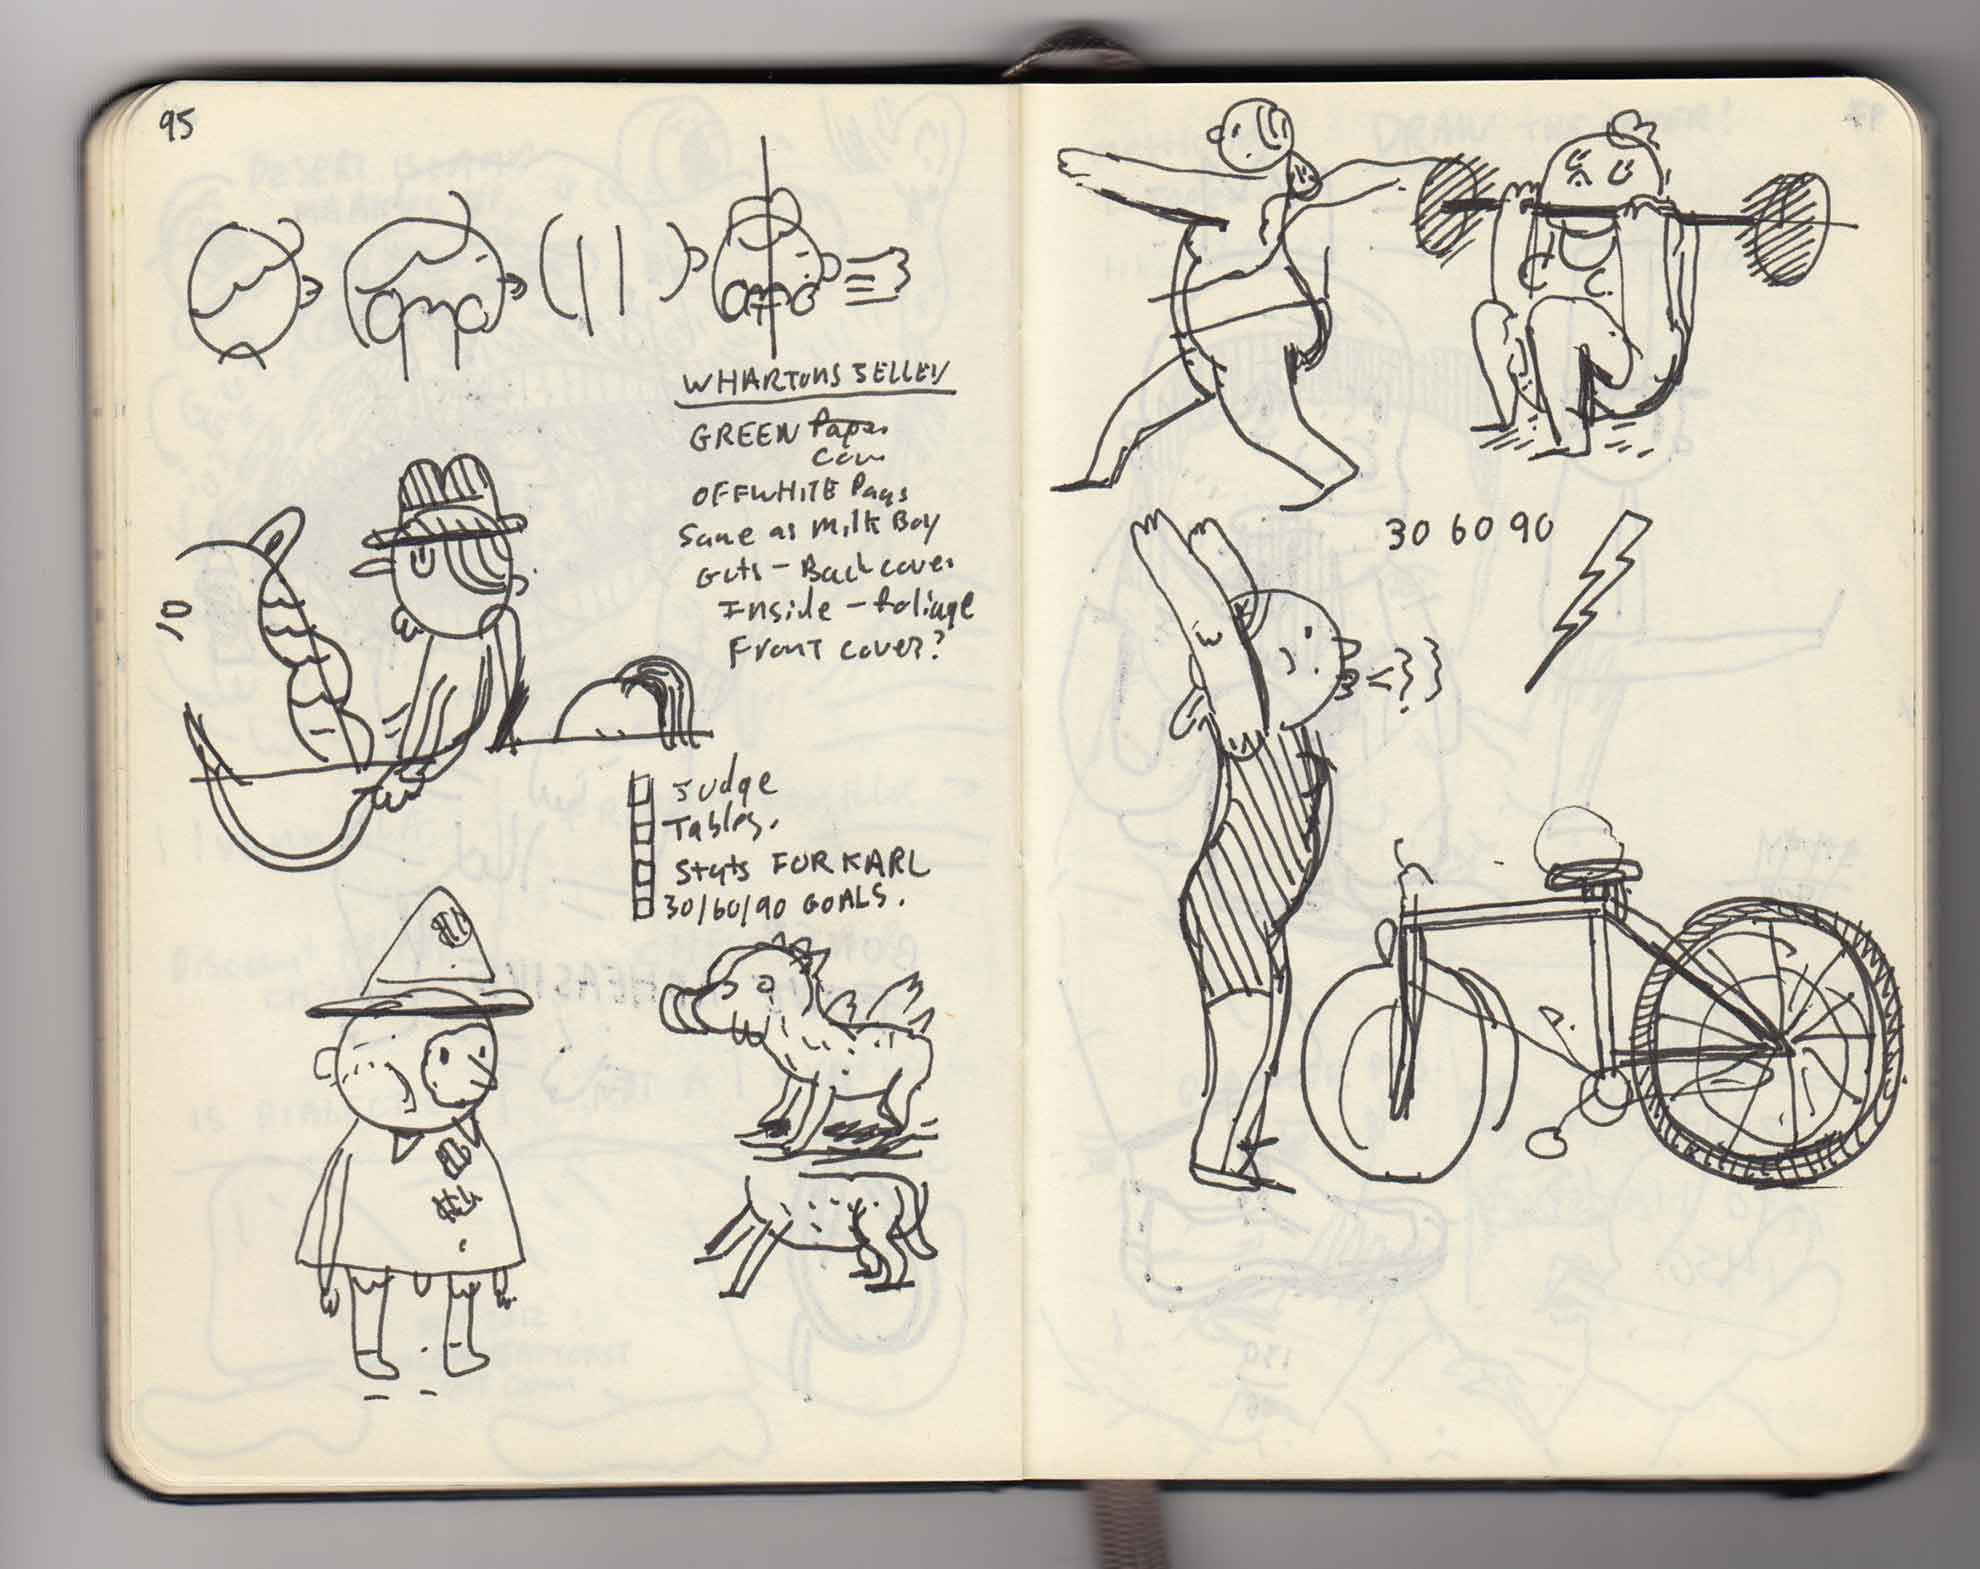 95
WHARTONS JELLEY
GREEN Paper
Cover
OFFWHITE Pages
Same as Milk Boy
Guts - Back cover
Inside - foliage
Front cover?
10
Judge
Tables.
Stats FOR KARL
30/60/90 GOALS.
30 60 90